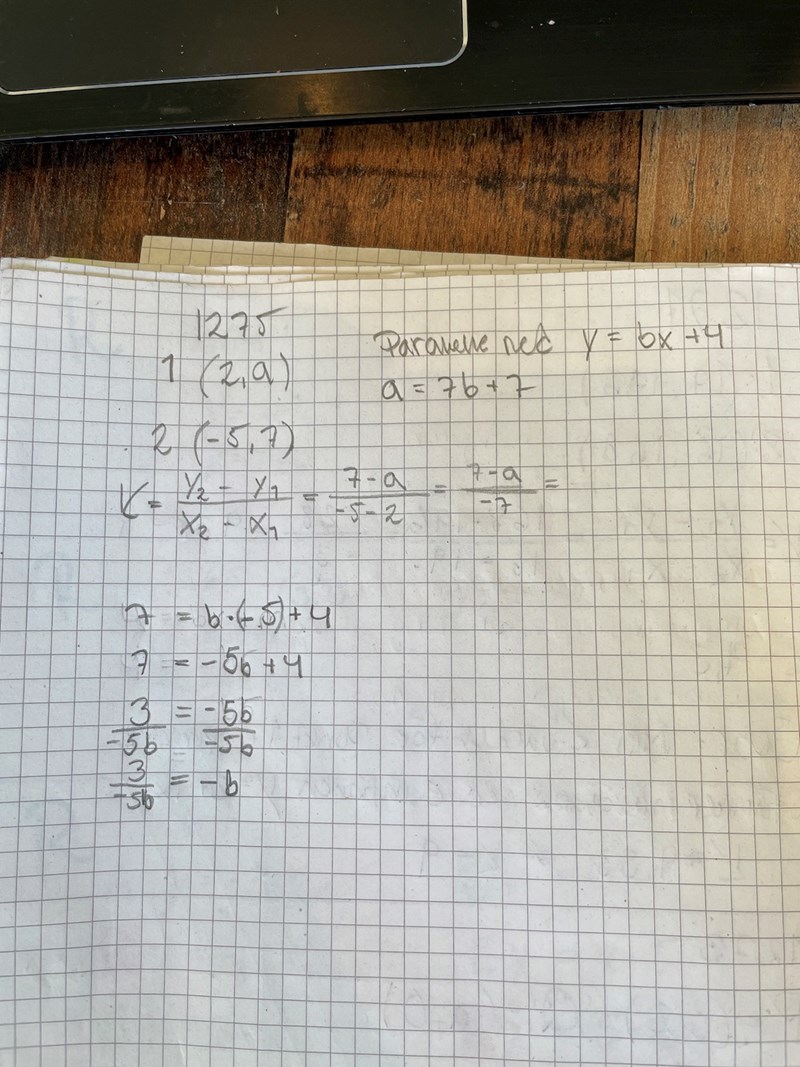 1275
1 (2,a)
Parallell med y = bx + 4
a = 7b + 7
2 (-5,7)
K = \frac{y_2 - y_1}{x_2 - x_1} = \frac{7-a}{-5-2} = \frac{7-a}{-7} =
7 = b·(-5) + 4
7 = -5b + 4
\frac{3}{-5b} = \frac{-5b}{-5b}
\frac{3}{-5b} = -b